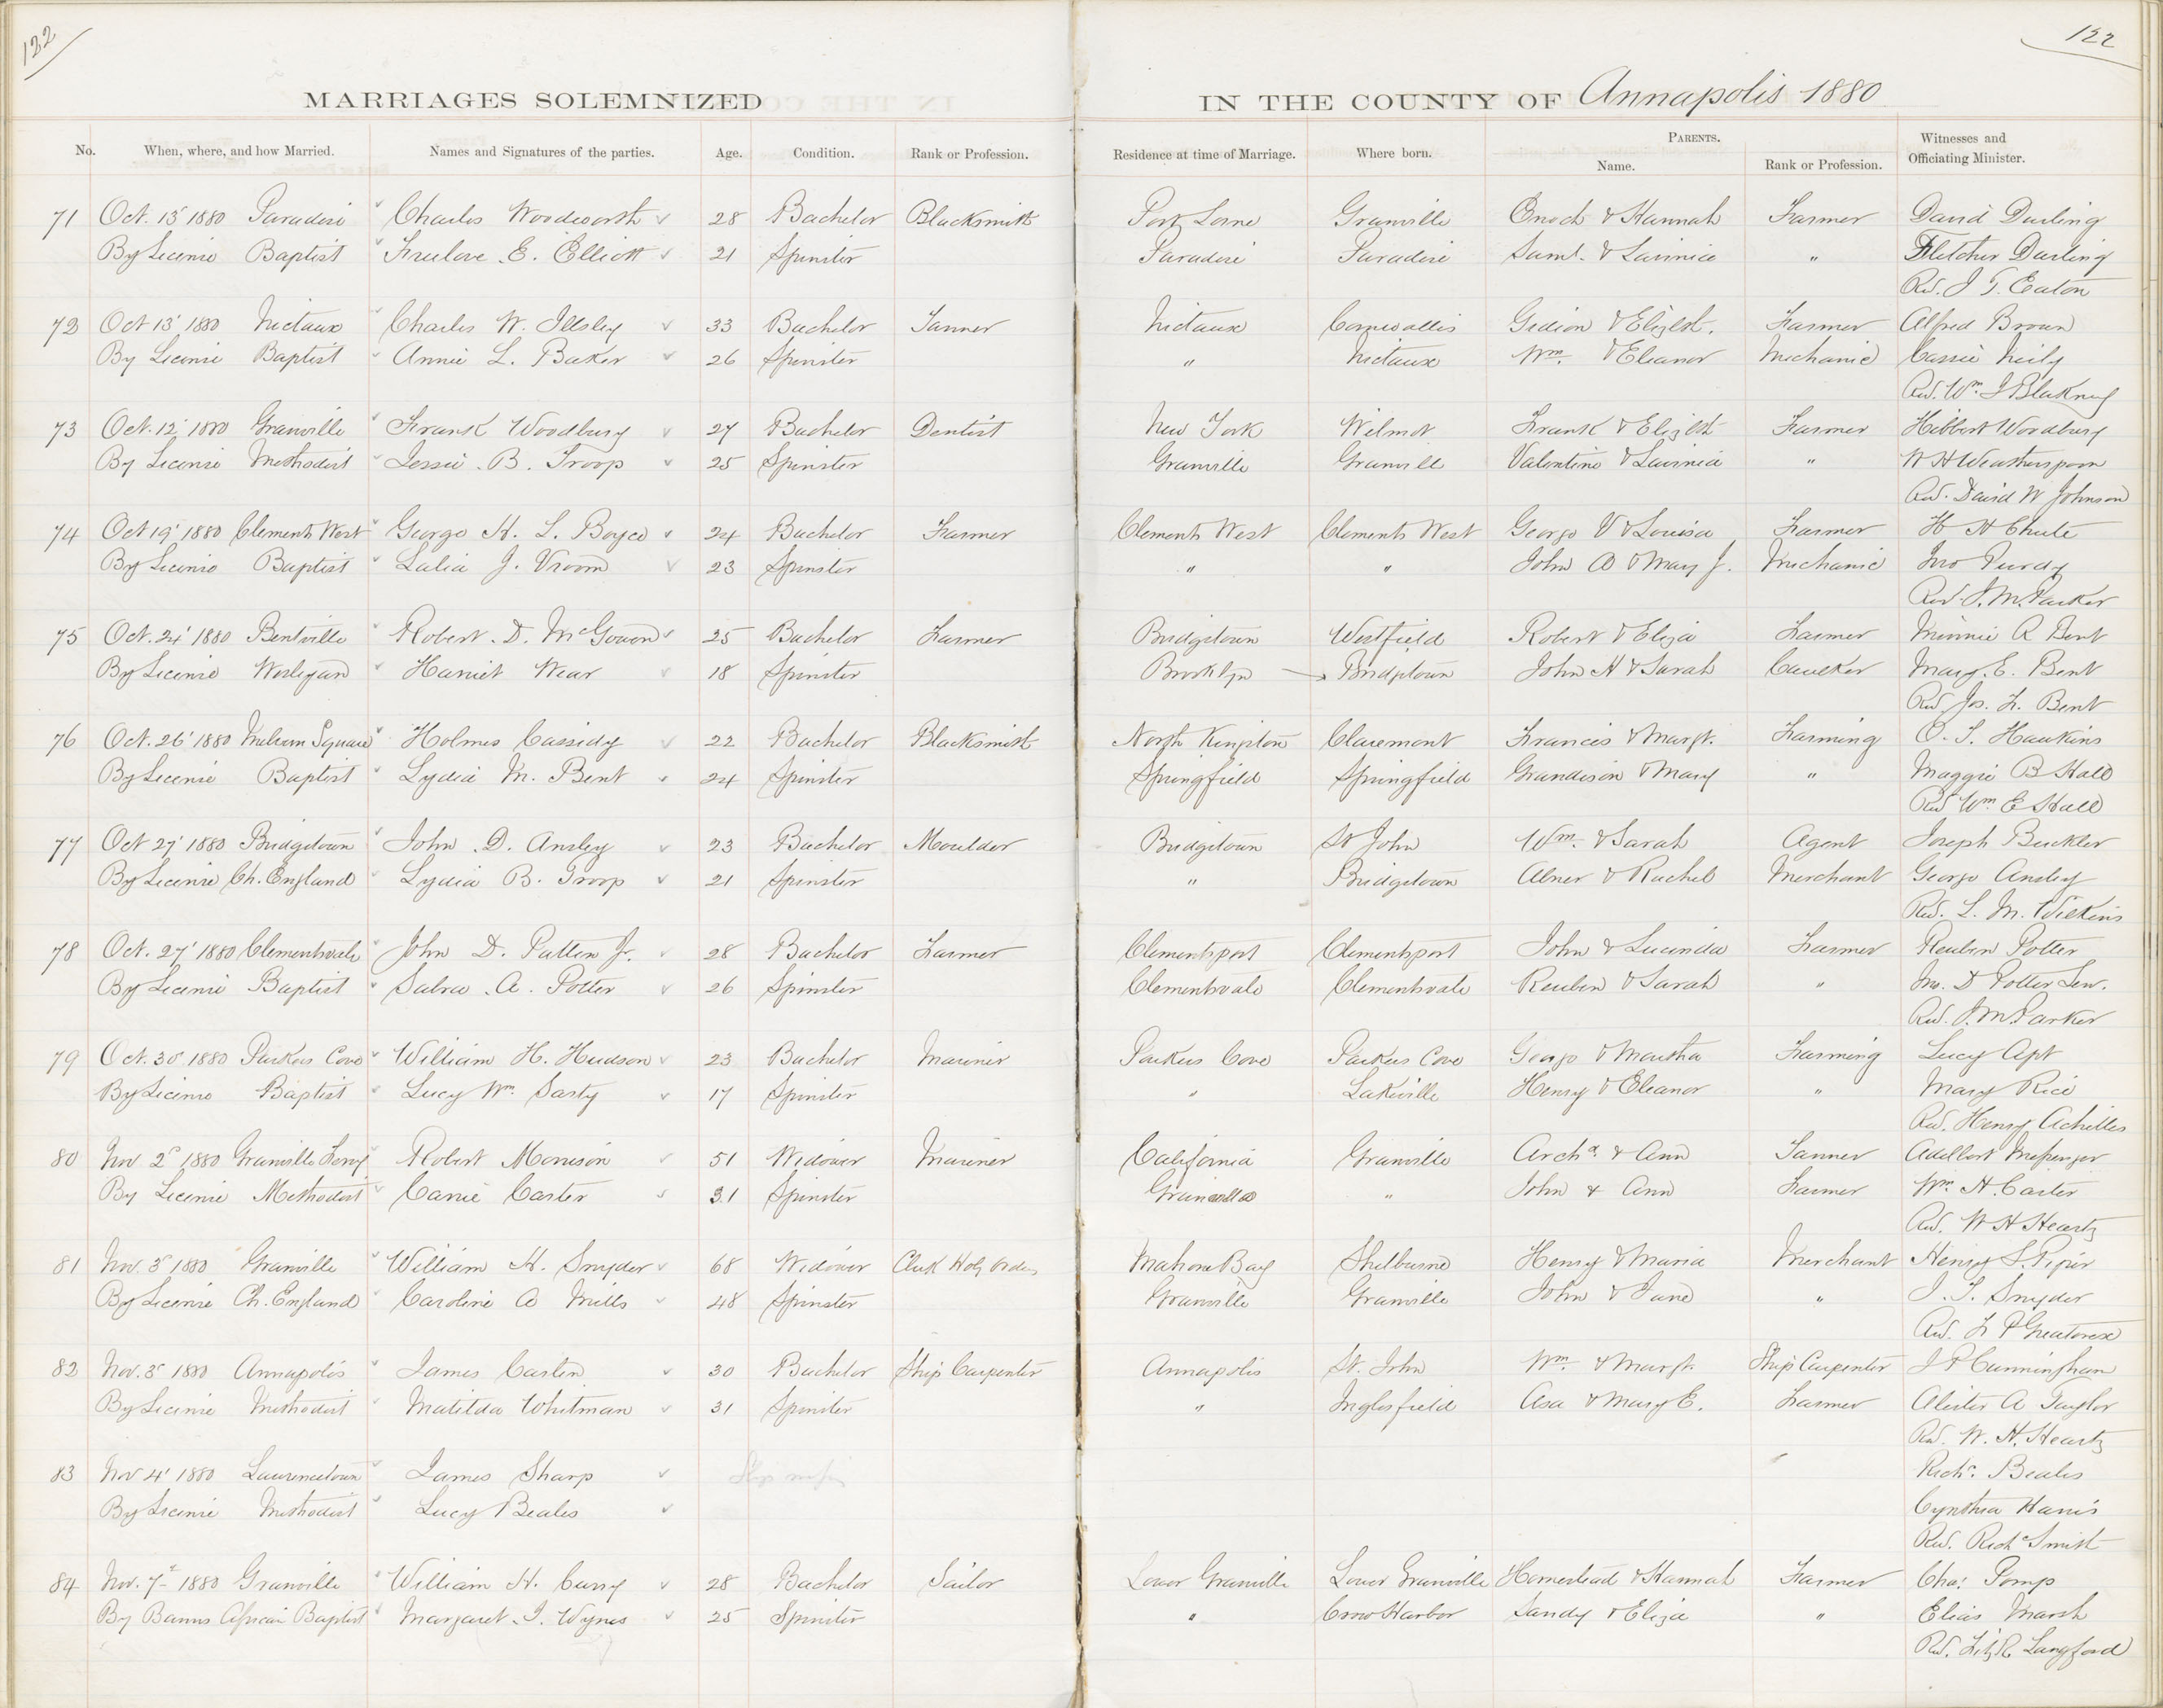 122
122
MARRIAGES SOLEMNIZED IN THE COUNTY OF Annapolis 1880
No. When, where, and how Married. Names and Signatures of the parties. Age. Condition. Rank or Profession. Residence at time of Marriage. Where born. PARENTS. Name. Rank or Profession. Witnesses and Officiating Minister.
71 Oct. 13' 1880 Paradise Charles Woodworth 28 Bachelor Blacksmith Port Lorne Granville Enoch & Hannah Farmer David Darling
By License Baptist Freelove E. Elliott 21 Spinster Paradise Paradise Saml. & Lavinia " Fletcher Darling
Rev. J T. Eaton
72 Oct 13' 1880 Nictaux Charles W. Illsley 33 Bachelor Tanner Nictaux Cornwallis Gideon & Elizbt. Farmer Alfred Brown
By License Baptist Annie L. Baker 26 Spinster " Nictaux Wm. & Eleanor Mechanic Cassie Neily
Rev. Wm J Blakney
73 Oct. 12' 1880 Granville Frank Woodbury 27 Bachelor Dentist New York Wilmot Frank & Elizbth Farmer Hibbert Woodbury
By License Methodist Jessie B. Troop 25 Spinster Granville Granville Valentine & Lavinia " W H Weatherspoon
Rev. David W Johnson
74 Oct 19' 1880 Clements West George H. L. Boyce 24 Bachelor Farmer Clements West Clements West George V & Louisa Farmer H H Chute
By License Baptist Lalia J. Vroom 23 Spinster " " John A & Mary J. Mechanic Jno Purdy
Rev. J. M. Parker
75 Oct. 24' 1880 Bentville Robert D. McGowan 25 Bachelor Farmer Bridgetown Westfield Robert & Eliza Farmer Minnie R Bent
By License Wesleyan Harriet Wear 18 Spinster Brooklyn Bridgtown John H & Sarah Caulker Mary E. Bent
Rev Jos. F. Bent
76 Oct. 26' 1880 Melvern Square Holmes Cassidy 22 Bachelor Blacksmith North Kingston Claremont Francis & Margt. Farming O. S. Hawkins
By License Baptist Lydia M. Bent 24 Spinster Springfield Springfield Grandison & Mary " Maggie B Hall
Rev Wm E Hall
77 Oct 27' 1880 Bridgetown John D. Ansley 23 Bachelor Moulder Bridgetown St John Wm. & Sarah Agent Joseph Buckler
By License Ch. England Lydia B. Troop 21 Spinster " Bridgetown Abner & Rachel Merchant George Ansley
Rev. L. M. Wilkins
78 Oct. 27' 1880 Clementsvale John D. Potter Jr. 28 Bachelor Farmer Clementsport Clementsport John & Lucinda Farmer Reuben Potter
By License Baptist Sabra A. Potter 26 Spinster Clementsvale Clementsvale Reuben & Sarah " Jno. D Potter Sen.
Rev. J. M. Parker
79 Oct. 30' 1880 Parkers Cove William H. Hudson 23 Bachelor Mariner Parkers Cove Parkers Cove George & Martha Farming Lucy Apt
By License Baptist Lucy Wm. Sarty 17 Spinster " Lakeville Henry & Eleanor " Mary Rice
Rev. Henry Achilles
80 Nov 2d 1880 Granville Ferry Robert Morrison 51 Widower Mariner California Granville Archd. & Ann Tanner Adelbert Messenger
By License Methodist Carrie Carter 31 Spinster Granville " John & Ann Farmer Wm. H. Carter
Rev. W H Heartz
81 Nov. 3d 1880 Granville William H. Snyder 68 Widower Clerk Holy Orders Mahone Bay Shelburne Henry & Maria Merchant Henry S. Piper
By License Ch. England Caroline A Mills 48 Spinster Granville Granville John & Jane " J. T. Snyder
Rev. F P Greatorex
82 Nov. 3d 1880 Annapolis James Carlin 30 Bachelor Ship Carpenter Annapolis St. John Wm. & Margt. Ship Carpenter J P Cunningham
By License Methodist Matilda Whitman 31 Spinster " Inglesfield Asa & Mary E. Farmer Alister A Taylor
Rev. W. H. Heartz
83 Nov 4' 1880 Lawrencetown James Sharp Richd. Beales
By License Methodist Lucy Beales Cynthia Harris
Rev. Richd Smith
84 Nov. 7th 1880 Granville William H. Curry 28 Bachelor Sailor Lower Granville Lower Granville Homestead & Hannah Farmer Chas. Pomp
By Banns African Baptist Margaret J. Wynes 25 Spinster " Crow Harbor Sandy & Eliza " Elias Marsh
Rev. Langford